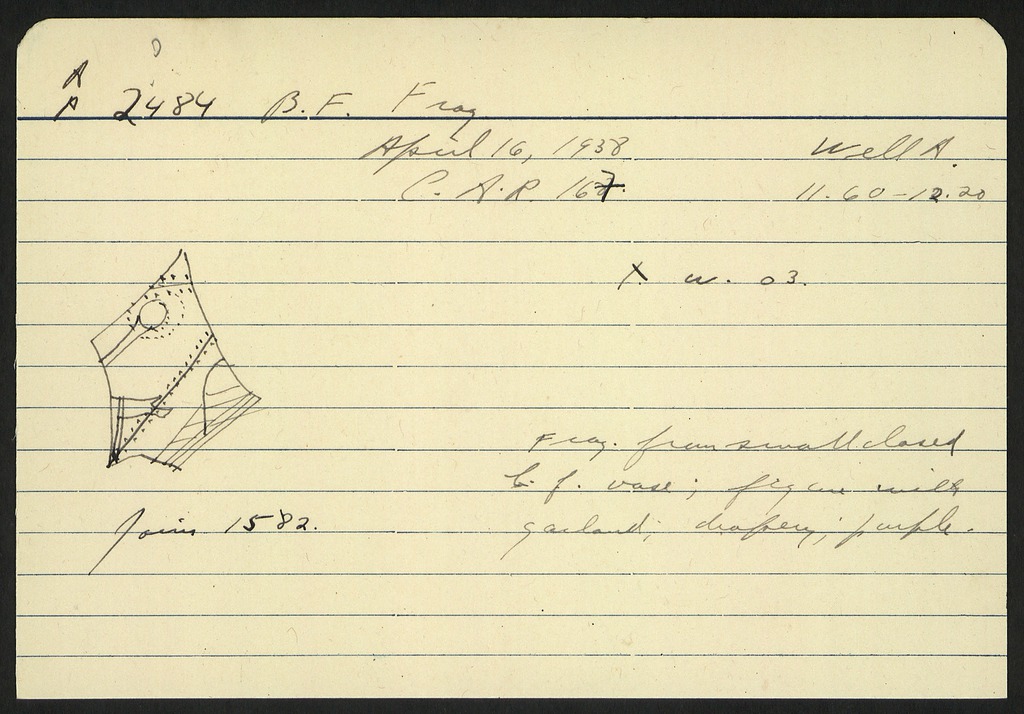 A
A 2484 B.F. Frag
April 16, 1938 Well A.
C. A.R. 167. 11.60-12.20
X w. 03.
Frag. from small closed
b. f. vase; figure with
garland; drapery; purple.
Joins 1582.